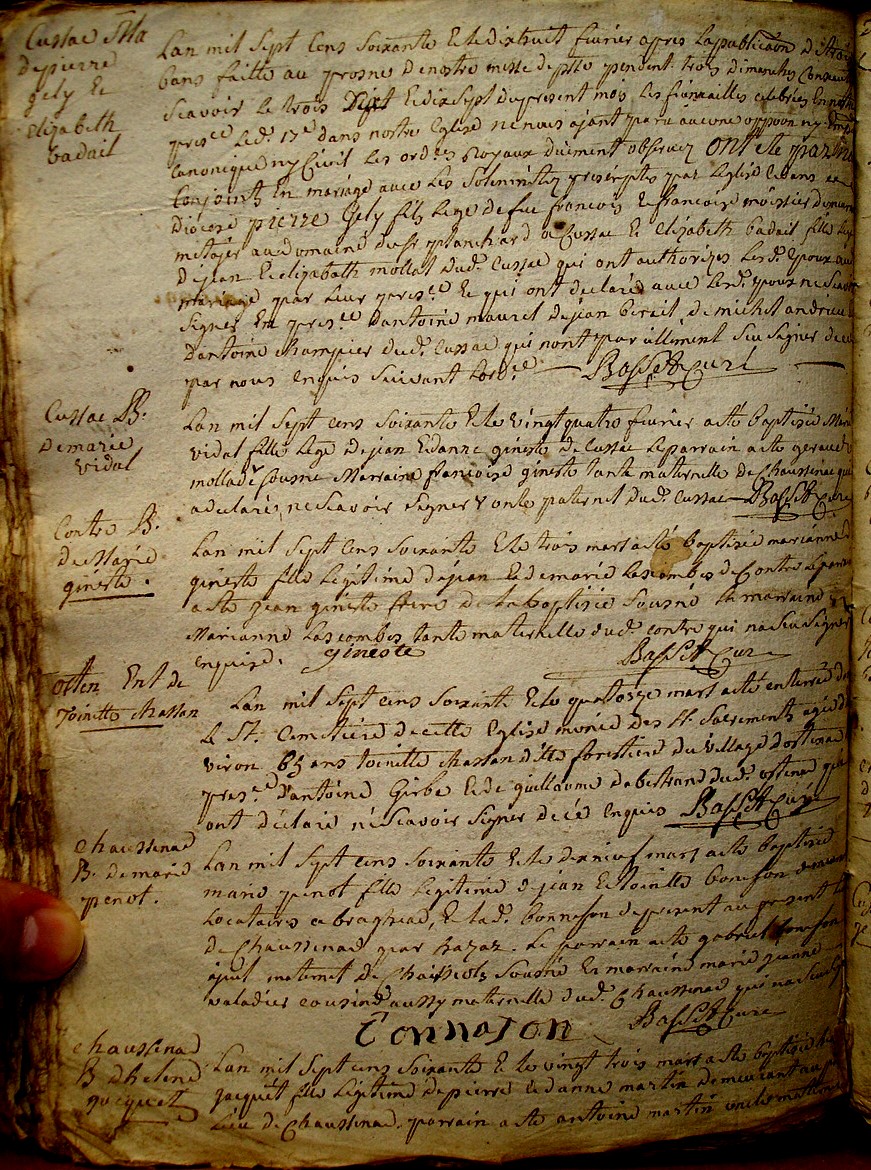 Cussac Ma
de pierre
gely et
Elizabeth
badail
Lan mil Sept Cens Soixante Et le dixhuit fevrier apres la publication de trois
bans faitte au prosne de nostre messe de psse pendent trois dimanches Consecut
Scavoir le trois Dix Et dix Sept du present mois Les fiançailles celebrées En nostre
presce led. 17e dans nostre Eglise ne nous ajant paru aucune opposon ny Emp
Canonique ny Civil Les ordces Royaux duement observez ont été par moy
Conjoints En mariage avec Les Solemnités prescriptes par Leglise dans ce
Diocese pierre Gely fils lege de feu francois Et francoise moissier demeurant
metajer au domaine du Sr planchard a Cussac Et Elizabeth badail fille lege
de jean Et elizabeth mollat dud. Cussac qui ont authorizes lesd. Epoux au
mariage par Leur presce Et qui ont declaré avec lesd. Epoux ne Scavoir
Signer En presce dantoine maurel de jean berail de michel andrieu
Dantoine champier dud. Cussac qui nont pareillement Seu Signer de ce
par nous Enquis Suivant Lordce Basset Curé
Cussac B.
de marie
vidal
Lan mil Sept cens Soixante Et le vingt quatre fevrier a été baptisée Marie
vidal fille lege de jean Et danne gineste de Cussac Le parrain a été geraud
mollade Sousné Marraine francoise gineste tante maternelle de Chaussenac qui
a declaré ne Scavoir Signer oncle paternel dud. Cussac Basset Curé
Contre B.
de Marie
gineste.
Lan mil Sept Cens Soixante Et le trois mars a été baptisée marianne
gineste fille Legitime de jean Et de marie Lascombes de Contre Le parrain
a été jean gineste frere de la baptisée Sousné La marraine
Marianne Lascombes tante maternelle dud. contre qui na Seu Signer
enquise. gineste Basset Curé
osten Ent de
Toinette chassan
Lan mil Sept cens Soixante Et le quatorze mars a été enterrée dans
le St. Cemetiere de cette Eglise munie des Sts. Sacrements agée d
viron 65 ans toinette chassan ditte forestiere du village dostenac
presce d'antoine Girbe Et de guillaume dabertrand dud. ostenac qui
ont déclaré ne Scavoir Signer de ce Enquis Basset Curé
chaussenac
B. de marie
penot.
Lan mil Sept cens Soixante Et le dixneuf mars a été baptisée
marie penot fille Legitime de jean Et toinette bonnefon demeurant
Locataires a braghead, Et lad. bonnefon de present au present Lieu
de Chaussenac par hazar. Le parrain a été gabriel bonnefon
ajeul maternel de Sousné Et marraine marie jeanne
valadier cousine aussy maternelle dud. Chaussenac qui na Seu Sig
Bonnafon Basset Curé
chaussenac
B dhelene
jacquet
Lan mil Sept cens Soixante Et le vingt trois mars a été baptisée helene
jacquet fille Legitime de pierre Et danne martin demeurant au pnt
Lieu de Chaussenac. parrain a été antoine martin oncle maternel